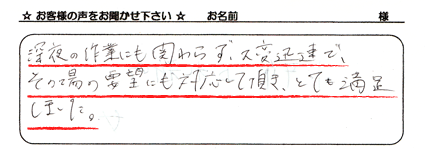 ☆ お客様の声をお聞かせ下さい ☆ お名前 様
深夜の作業にも関わらず、大変迅速で、
その場の要望にも対応して頂き、とても満足
しました。